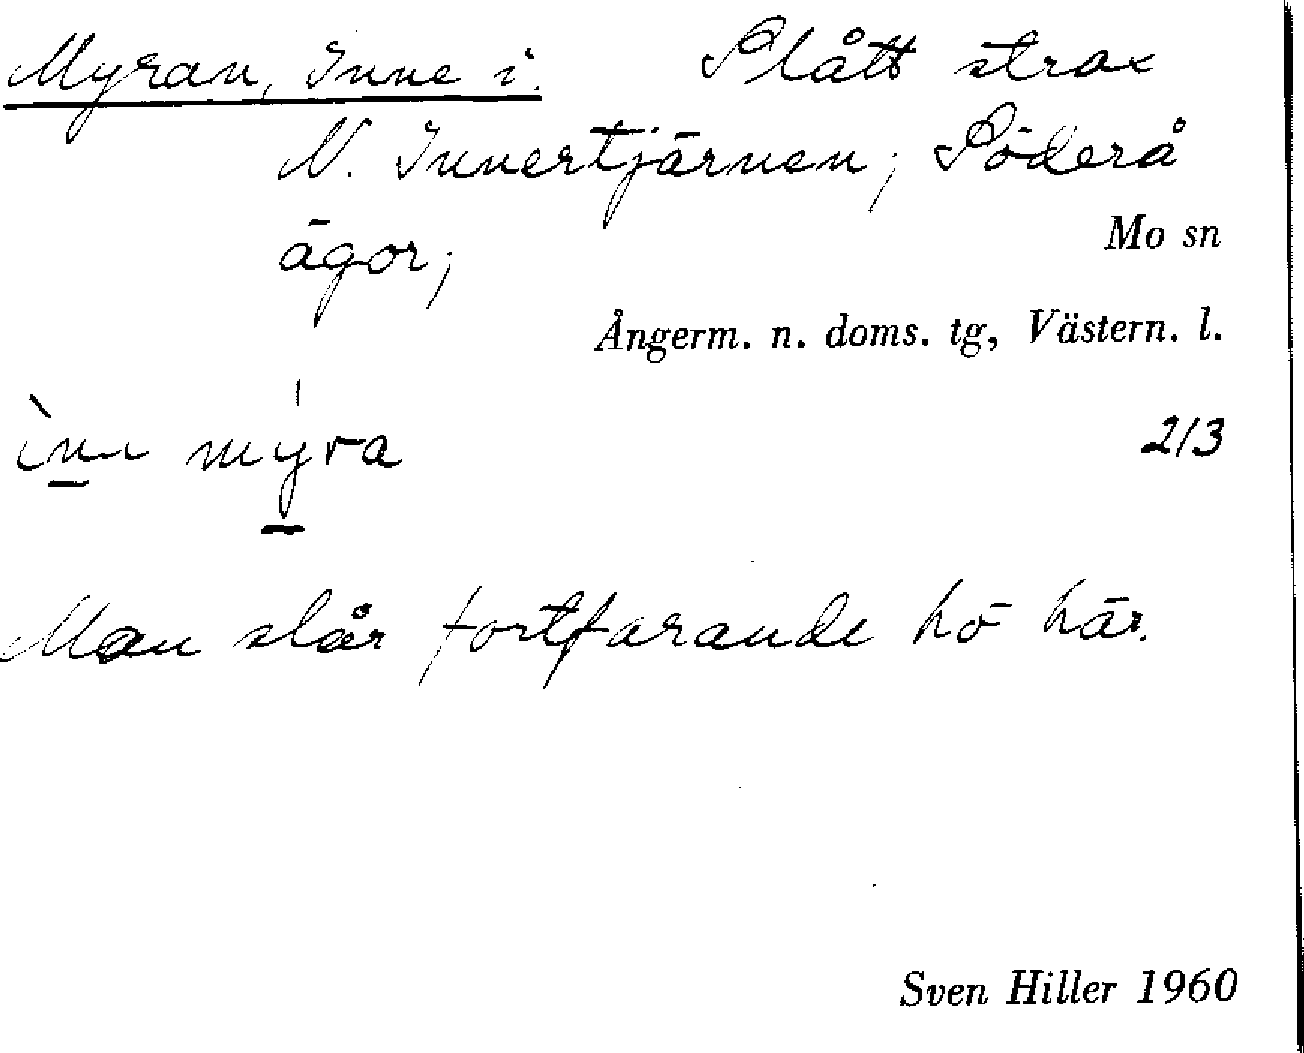 Myran, Inne i. Slått strax
N. Innertjärnen; Söderå
ägor;
Mo sn
Ångerm. n. doms. tg, Västern. l.
ìnn myra
213
Man slår fortfarande hö här.
Sven Hiller 1960